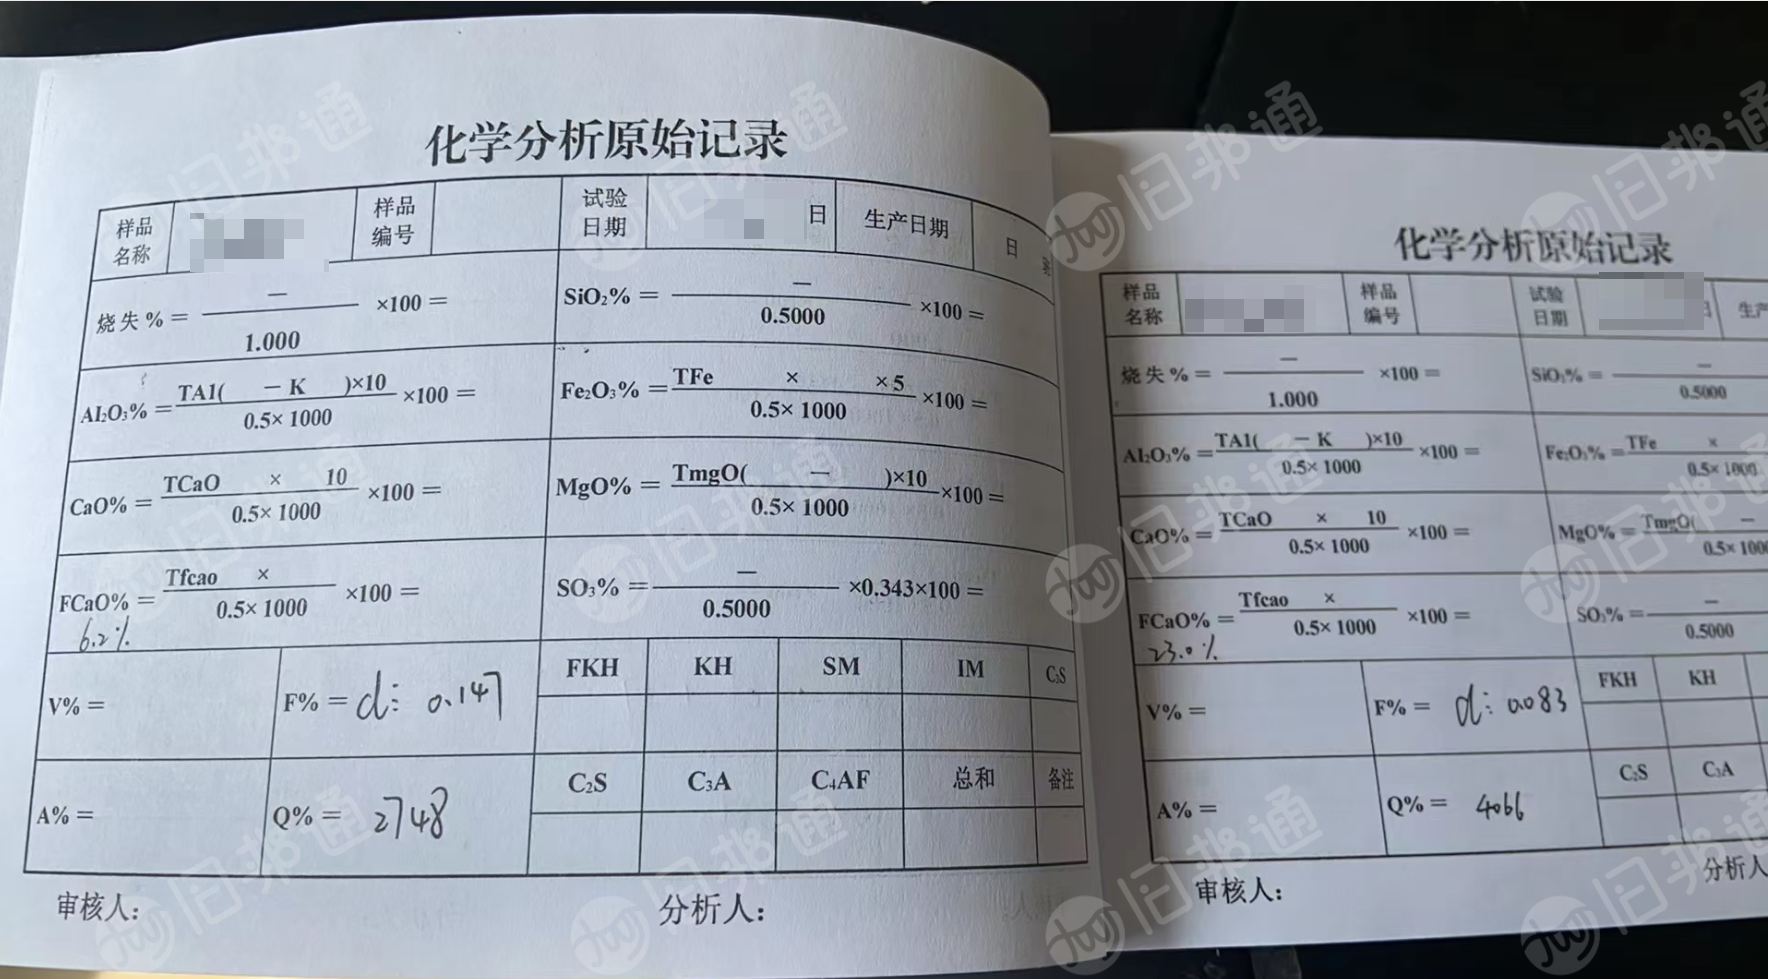 化学分析原始记录
样品名称 样品编号 试验日期 日 生产日期 日
烧失%= — ×100=
1.000
SiO₂%= — ×100=
0.5000
Al₂O₃%= TAl( —K )×10 ×100=
0.5×1000
Fe₂O₃%= TFe × ×5 ×100=
0.5×1000
CaO%= TCaO × 10 ×100=
0.5×1000
MgO%= TmgO( — )×10 ×100=
0.5×1000
FCaO%= Tfcao × ×100=
0.5×1000
6.2%
SO₃%= — ×0.343×100=
0.5000
V%= F%= d: 0.147 FKH KH SM IM C₃S
A%= Q%= 2748 C₂S C₃A C₄AF 总和 备注
审核人: 分析人:
化学分析原始记录
样品名称 样品编号 试验日期 日
烧失%= — ×100=
1.000
SiO₂%= —
0.5000
Al₂O₃%= TAl( —K )×10 ×100=
0.5×1000
Fe₂O₃%= TFe ×
0.5×1000
CaO%= TCaO × 10 ×100=
0.5×1000
MgO%= TmgO( —
0.5×100
FCaO%= Tfcao × ×100=
0.5×1000
23.0%
SO₃%= —
0.5000
V%= F%= d: 0.083 FKH KH
A%= Q%= 4066 C₂S C₃A
审核人: 分析人
旧邦通